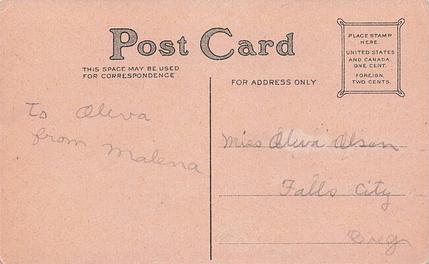 Post Card
THIS SPACE MAY BE USED
FOR CORRESPONDENCE
FOR ADDRESS ONLY
PLACE STAMP
HERE.
UNITED STATES
AND CANADA,
ONE CENT.
FOREIGN,
TWO CENTS.
To Oliva
from Malena
Miss Oliva Olson
Falls City
Oreg